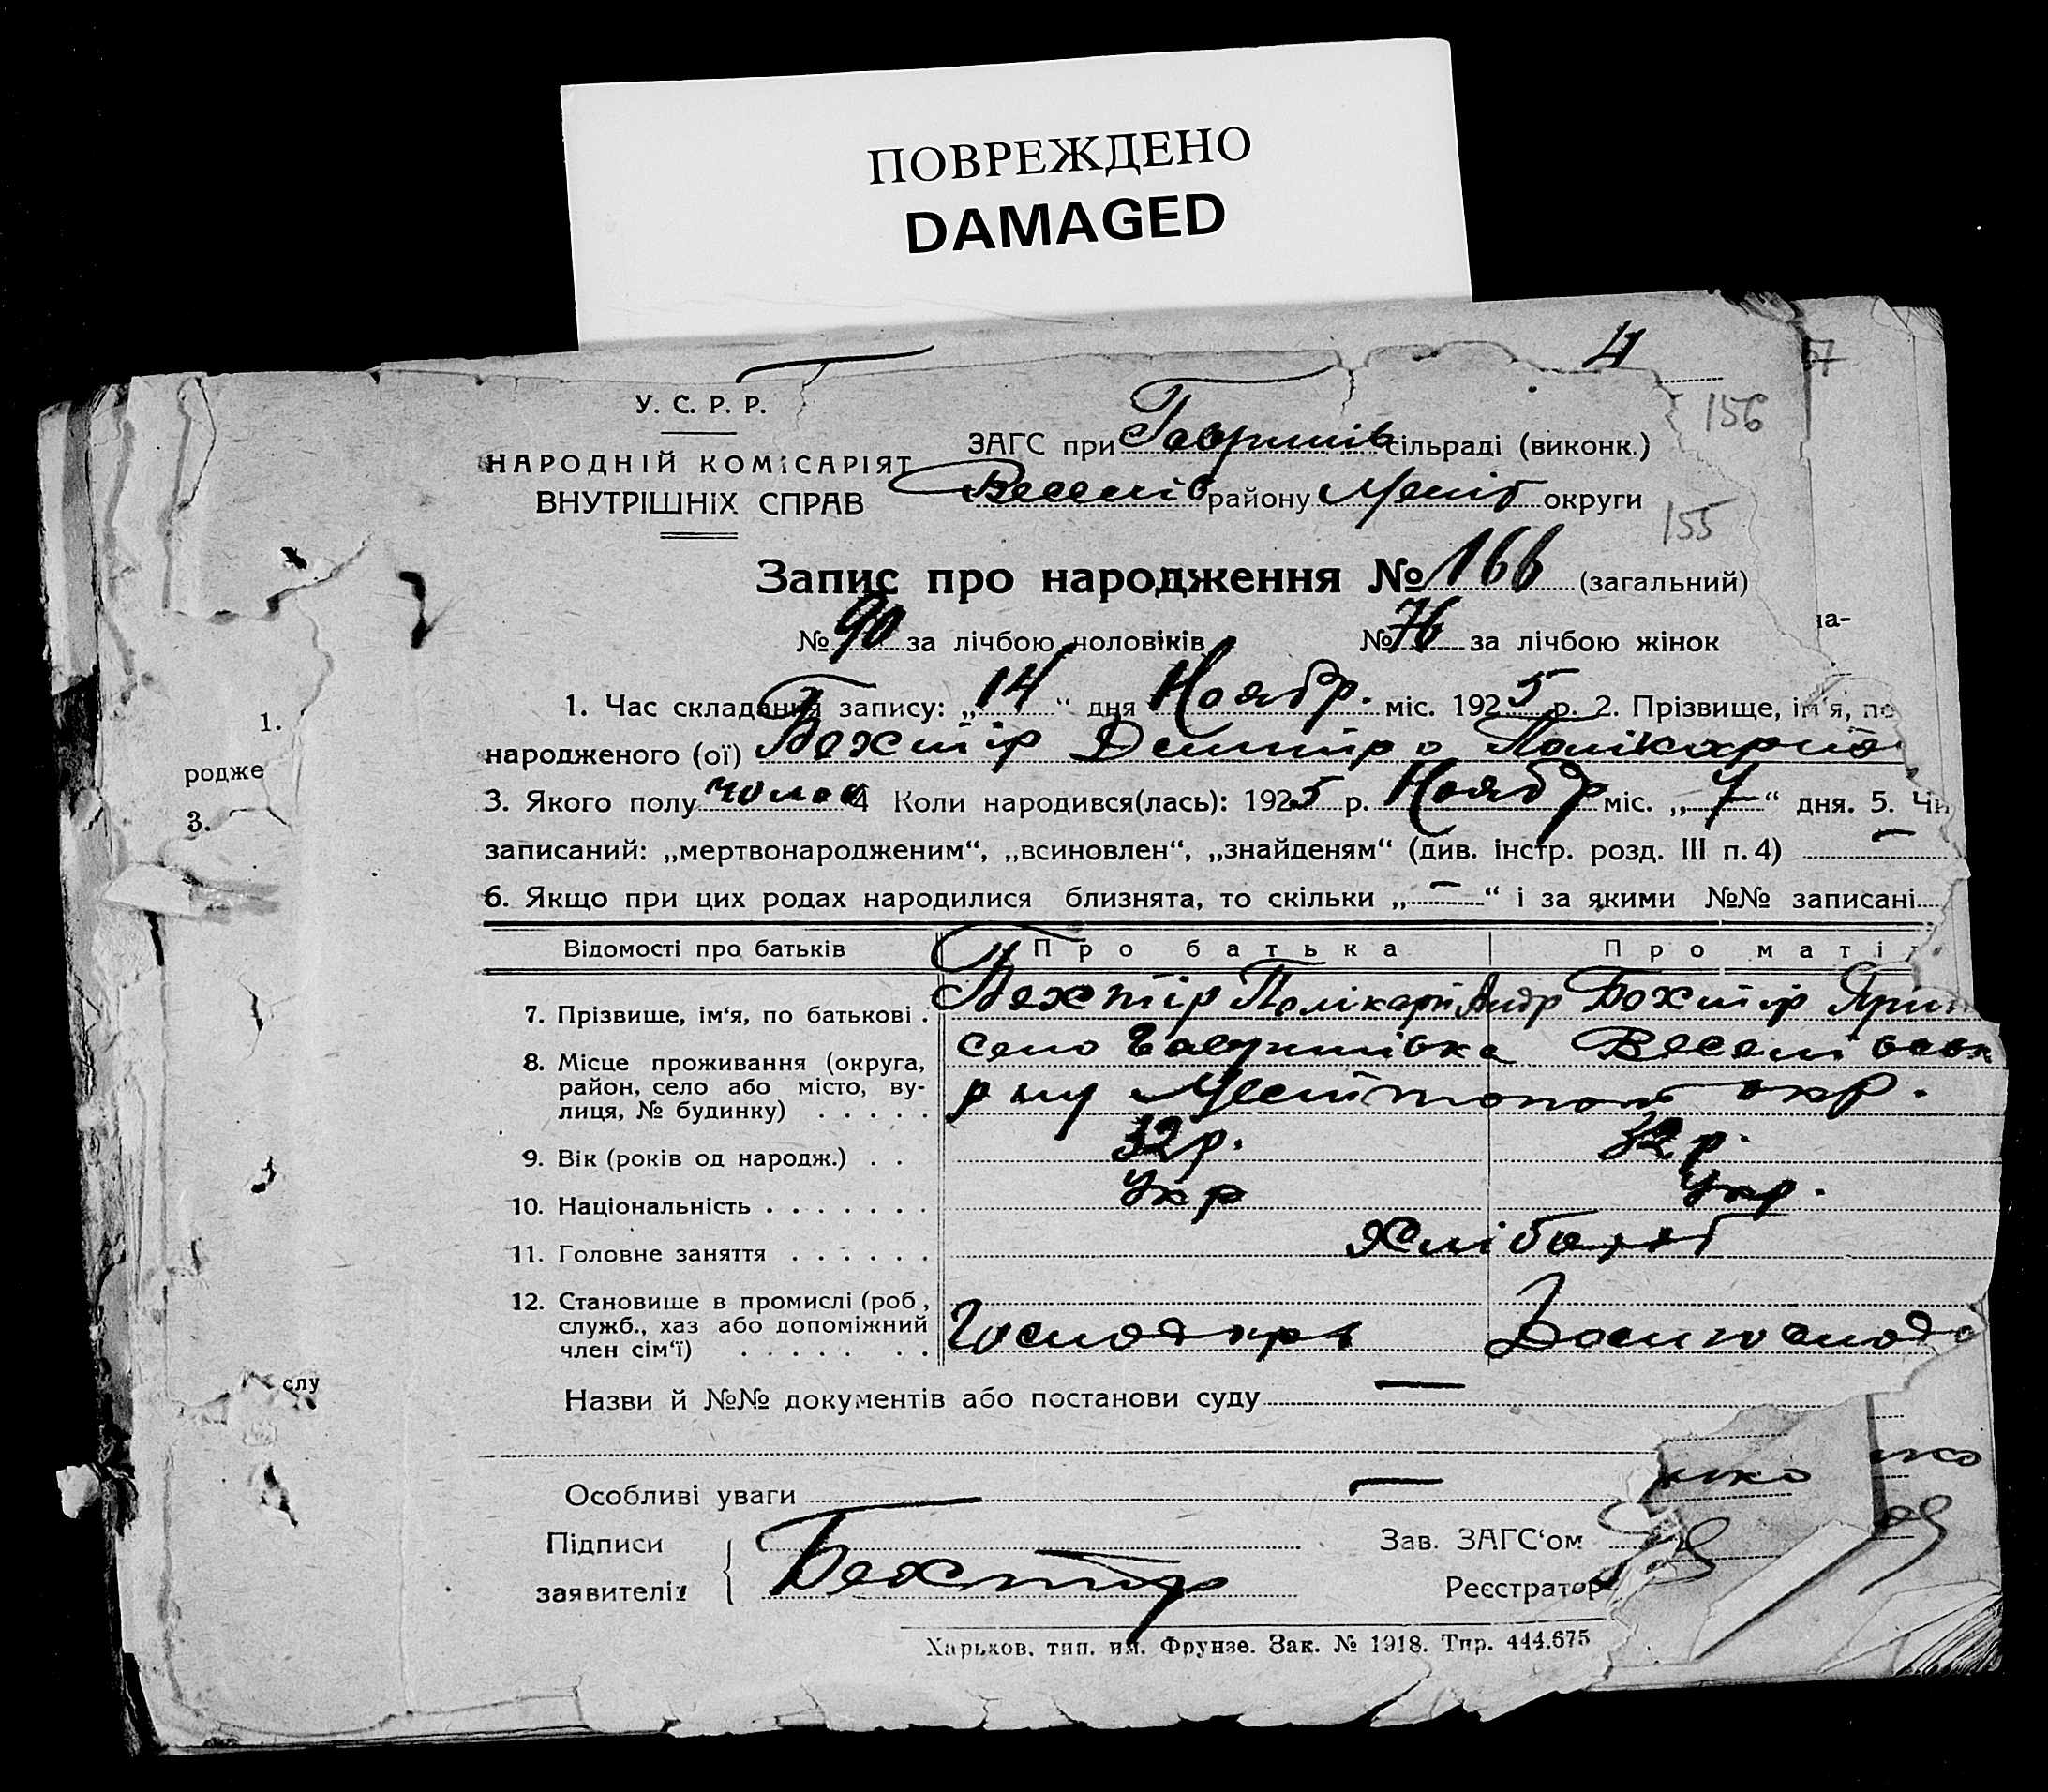 ПОВРЕЖДЕНО
DAMAGED
4
7
У. С. Р. Р.
156
ЗАГС при Гавришів сільраді (виконк.)
НАРОДНІЙ КОМІСАРІЯТ
ВНУТРІШНІХ СПРАВ
Веселів району Меліт округи
155
Запис про народження № 166 (загальний)
№ 90 за лічбою чоловіків № 76 за лічбою жінок
1. Час складання запису: „14“ дня Ноябр. міс. 1925 р. 2. Прізвище, ім'я, по
1.
народженого (ої) Бехтір Дмитро Полікарпо
родже
3. Якого полу чолов 4 Коли народився(лась): 1925 р. Ноябр міс. „7“ дня. 5. Чи
3.
записаний: „мертвонародженим“, „всиновлен“, „знайденям“ (див. інстр. розд. III п. 4) —
6. Якщо при цих родах народилися близнята, то скільки „—“ і за якими №№ записані
Відомості про батьків Про батька Про маті
7. Прізвище, ім'я, по батькові . Бехтір Полікарп Андр Бехтір
8. Місце проживання (округа, село Гавришівка
район, село або місто, ву-
лиця, № будинку) . . . . . р ну окр.
9. Вік (років од народж.) . . 32 р. 32 р.
10. Національність . . . . . . . Укр Укр.
11. Головне заняття . . . . . . Хлібороб
12. Становище в промислі (роб,
служб., хаз або допоміжний Господарь Домгоспода
член сім'ї) . . . . . . .
слу
Назви й №№ документів або постанови суду —
Особливі уваги —
Підписи
заявителів Бехтір
Зав. ЗАГС'ом
Реєстратор
Харьков, тип. им. Фрунзе. Зак. № 1918. Тир. 444.675